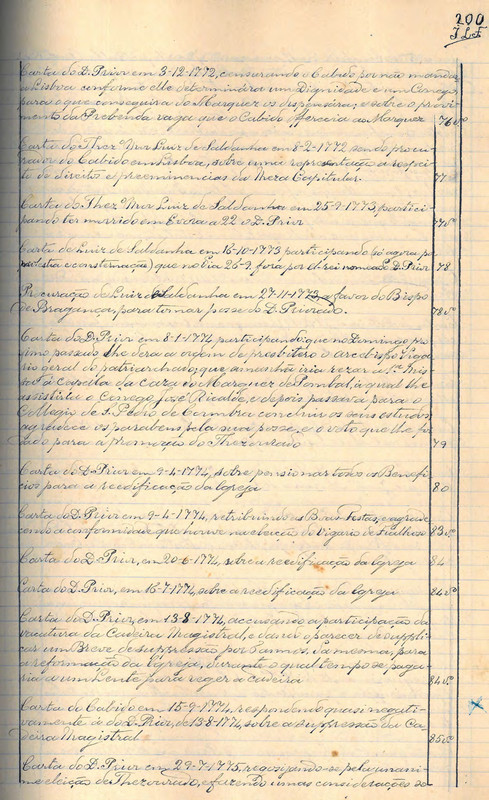 200
Carta do D. Prior em 3-12-1772, censurando o Cabido por não mandar
a Lisboa conforme elle determinára um Dignidade e um Conego,
para o que conseguira do Marquez os dispensára; e sobre o provi-
mento da Prebenda vaga que o Cabido offerecia ao Marquez 76 v.º
Carta do Thez.º Mor Luiz de Saldanha em 8-2-1772 sendo procu-
rador do Cabido em Lisboa, sobre uma representação a respei-
to de direitos e preeminencias da Meza Capitular. 77
Carta do Thez.º Mor Luiz de Saldanha em 25-9-1773, partici-
pando ter morrido em Evora a 22 o D. Prior 77 v.º
Carta de Luiz de Saldanha em 16-10-1773 participando (só agora por
molestia e consternação) que no dia 26-9, fora por El-rei nomeado D. Prior 78
Procuração de Luiz de Saldanha em 27-11-1773, a favor do Bispo
de Bragança, para tomar posse do D. Priorado. 78 v.º
Carta do D. Prior em 8-1-1774, participando: que no Domingo pro-
ximo passado lhe dera a ordem de presbitero o arcebispo Viga-
rio geral do patriarchado, que amanhã iria rezar a 1.ª Mis-
sa á Capella da Caza do Marquez de Pombal, á qual lhe
assistiria o Conego José Ricalde, e depois passará para o
Collegio de S. Pedro de Coimbra concluir os seus estudos;
agradece os parabens pela sua posse, e o voto que lhe foi
dado para a promoção do Thezourado 79
Carta do D. Prior em 9-4-1774, sobre pensionar todos os Benefi-
cios para a reedificação da Igreja 80
Carta do D. Prior em 9-4-1774, retribuindo as Boas Festas, e agrade-
cendo a conformidade que houve na eleição do Vigario de Fialhoso 83 v.º
Carta do D. Prior, em 20-6-1774, sobre a reedificação da Igreja 84
Carta do D. Prior, em 16-7-1774, sobre a reedificação da Igreja 84 v.º
Carta do D. Prior, em 13-8-1774, accusando a participação da
vacatura da Cadeira Magistral, e dando o parecer de suppli-
car um Breve de suppressão por annos, da mesma, para
a reformação da Igreja, durante o qual tempo se paga-
ria a um Lente para reger a cadeira 84 v.º
Carta do Cabido em 15-9-1774, respondendo quasi negati-
vamente á do D. Prior, de 13-8-1774, sobre a suppressão da Ca-
deira Magistral 85 v.º
Carta do D. Prior em 29-7-1775, regosijando-se pela unani-
me eleição do Thezourado, e fazendo umas considerações so-